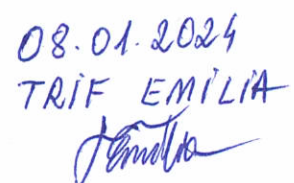 08.01.2024
TRIF EMILIA